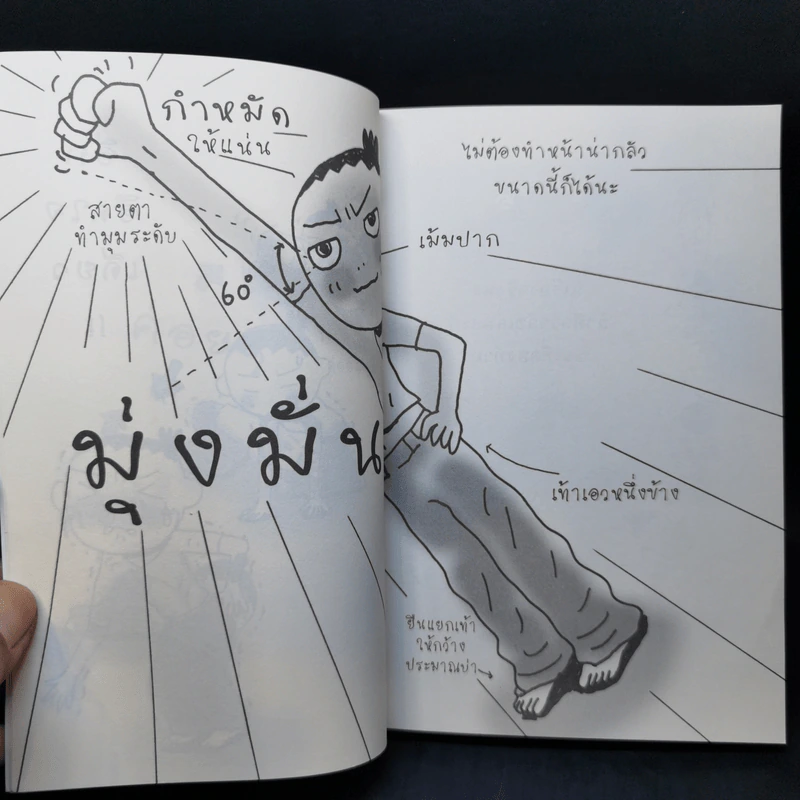 กำหมัด
ให้แน่น
สายตา
ทำมุมระดับ
60°
มุ่งมั่น
ไม่ต้องทำหน้าน่ากลัว
ขนาดนี้ก็ได้นะ
เม้มปาก
เท้าเอวหนึ่งข้าง
ยืนแยกเท้า
ให้กว้าง
ประมาณบ่า